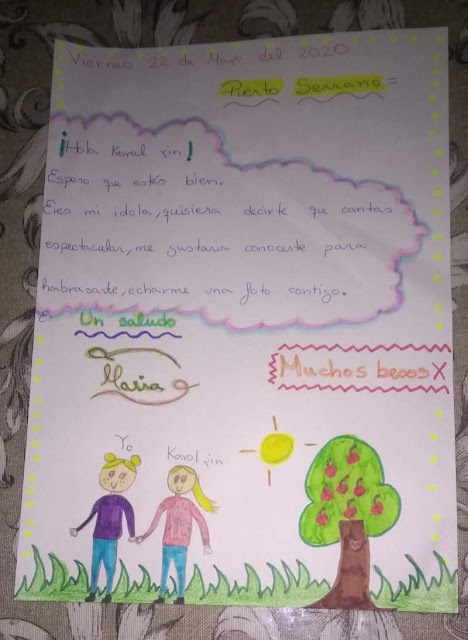 Viernes 22 de Mayo del 2020
Puerto Serrano
¡Hola Karol xin!
Espero que estés bien.
Eres mi idola, quisiera decirte que cantas
espectacular, me gustaria conocerte para
habrasarte, echarme una foto contigo.
Un saludo
Maria
Muchos besos X
Yo
Karol xin